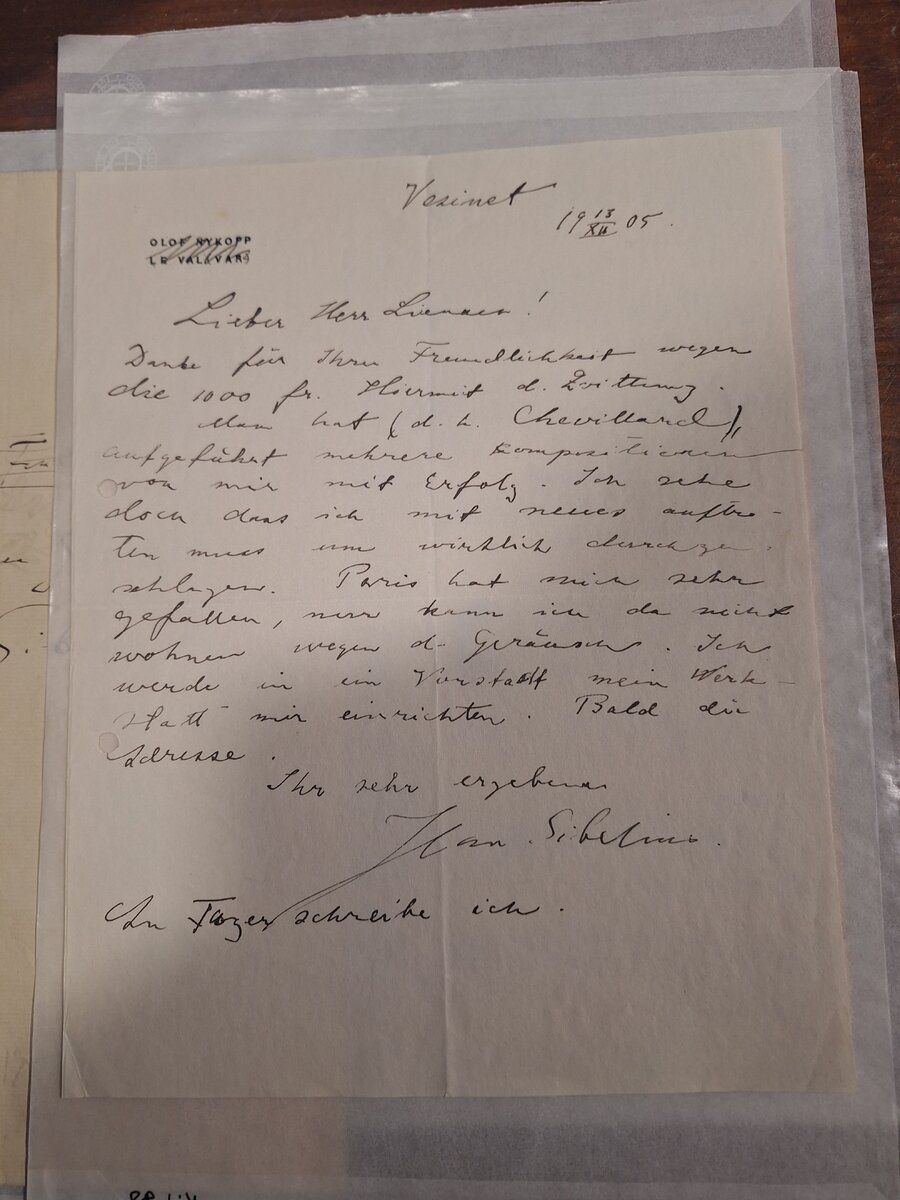 Vesinet
19 13/XII 05.
OLOF NYKOPP
LE VAL (VAR)
Lieber Herr Lienau!
Danke für Ihre Freundlichkeit wegen
die 1000 fr. Hiermit d. Quittung.
Man hat (d. h. Chevillard),
aufgeführt mehrere Kompositionen
von mir mit Erfolg. Ich sehe
doch dass ich mit neues auftre-
ten muss um wirklich durchzu-
schlagen. Paris hat mich sehr
gefallen, nur kann ich da nicht
wohnen wegen d. Geräusch. Ich
werde in ein Vorstadt mein Werk-
statt mir einrichten. Bald die
Adresse.
Ihr sehr ergebener
Jean Sibelius.
An Fazer schreibe ich.